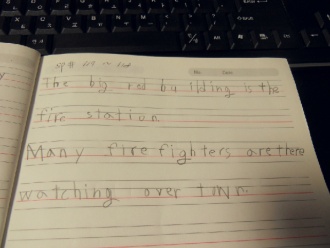 The big red building is the
fire station
Many firefighters are there
watching over town.